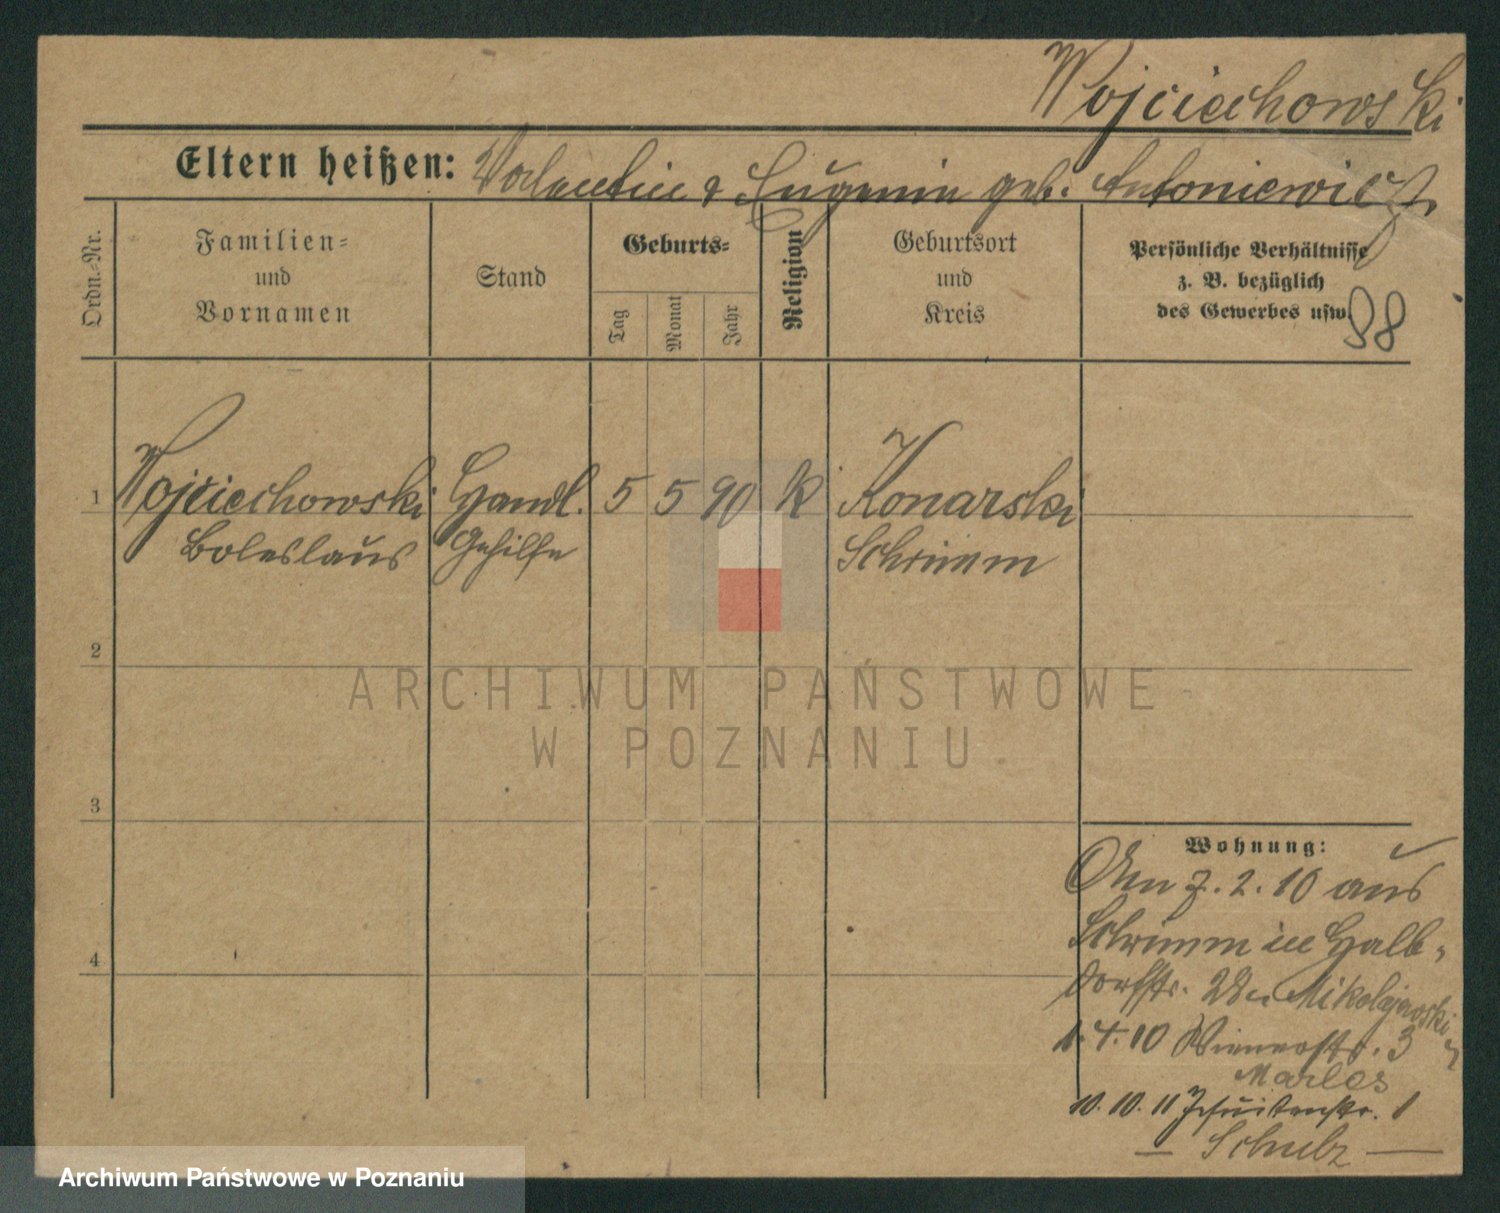 Wojciechowski
Eltern heißen: Valentin & Eugenia geb. Antoniewicz
Ordn.-Nr.
Familien-
und
Vornamen
Stand
Geburts-
Tag
Monat
Jahr
Religion
Geburtsort
und
Kreis
Persönliche Verhältnisse
z. B. bezüglich
des Gewerbes usw.
98
1 Wojciechowski Handl. 5 5 90 k Konarski
Boleslaus Gehilfe Schrimm
2
3
4
Wohnung:
2. 10 aus
Schrimm in Halb-
dorfstr. Mikolajewski
1. 4. 10 Wienerstr. 3
10. 10. 11 Jesuitenstr. 1
Schulz
ARCHIWUM PAŃSTWOWE
W POZNANIU
Archiwum Państwowe w Poznaniu